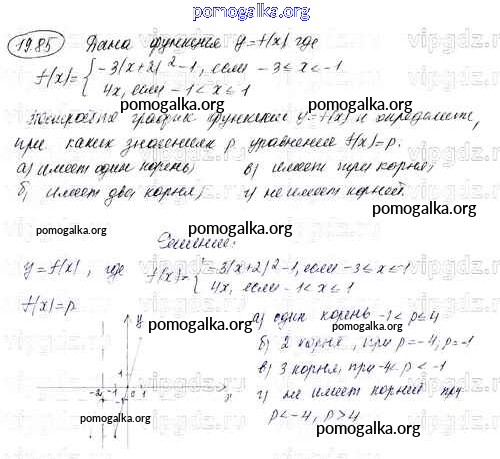 pomogalka.org
19.85 Дана функция y=f(x) где
f(x)= { -3(x+2)²-1, если -3≤x≤-1
4x, если -1<x≤1
pomogalka.org
Постройте график функции y=f(x) и определите,
при каких значениях p уравнение f(x)=p.
pomogalka.org
а) имеет один корень; в) имеет три корня;
б) имеет два корня; г) не имеет корней.
pomogalka.org
pomogalka.org
Решение:
pomogalka.org
y=f(x), где f(x)= { -3(x+2)²-1, если -3≤x≤-1
4x, если -1<x≤1
f(x)=p
pomogalka.org
y
а) один корень -1<p≤4
б) 2 корня, при p=-4, p=-1
pomogalka.org
в) 3 корня, при -4<p<-1
-2 -1 0 1 x
г) не имеет корней при
p<-4, p>4
pomogalka.org
pomogalka.org
vipgdz.ru